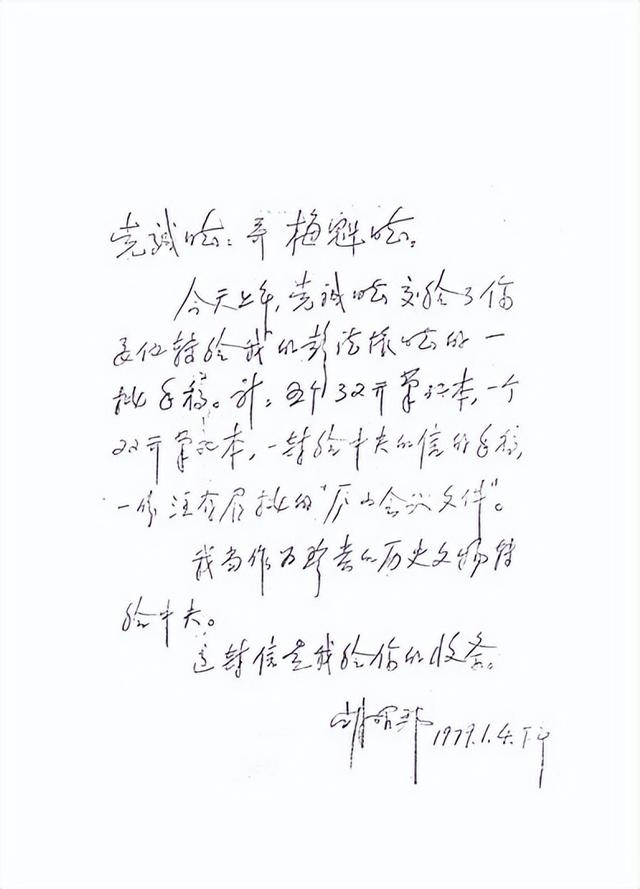 克诚同志:并梅魁同志。
今天上午,克诚同志交给了你
要他转给我的彭德怀同志的一
批手稿。计:五个32开笔记本,一个
22开笔记本,一封给中央的信的手稿,
一份注有眉批的"庐山会议文件"。
我当作为珍贵的历史文物转
给中央。
这封信是我给你的收条。
胡耀邦 1979.1.4.下午